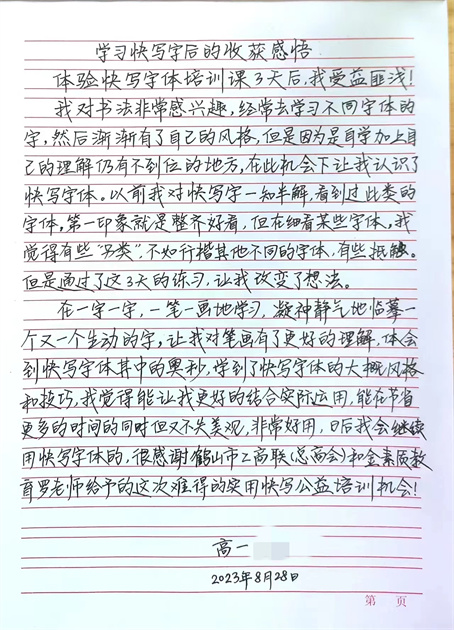 学习快写字后的收获感悟
体验快写字体培训课3天后,我受益匪浅!
我对书法非常感兴趣,经常去学习不同字体的
字,然后渐渐有了自己的风格,但是因为是自学加上自
己的理解仍有不到位的地方,在此机会下让我认识了
快写字体。以前我对快写字一知半解,看到过此类的
字体,第一印象就是整齐好看,但在细看某些字体,我
觉得有些“另类”,不如行楷其他不同的字体,有些抵触。
但是通过了这3天的练习,让我改变了想法。
在一字一字,一笔一画地学习,凝神静气地临摹一
个又一个生动的字,让我对笔画有了更好的理解,体会
到快写字体其中的奥秒,学到了快写字体的大概风格
和技巧,我觉得能让我更好的结合实际运用,能在节省
更多的时间的同时但又不失美观,非常好用,日后我会继续
用快写字体的,很感谢鹤山市工商联(总商会)和金素质教
育罗老师给予的这次难得的实用快写公益培训机会!
高一
2023年8月28日
第 页